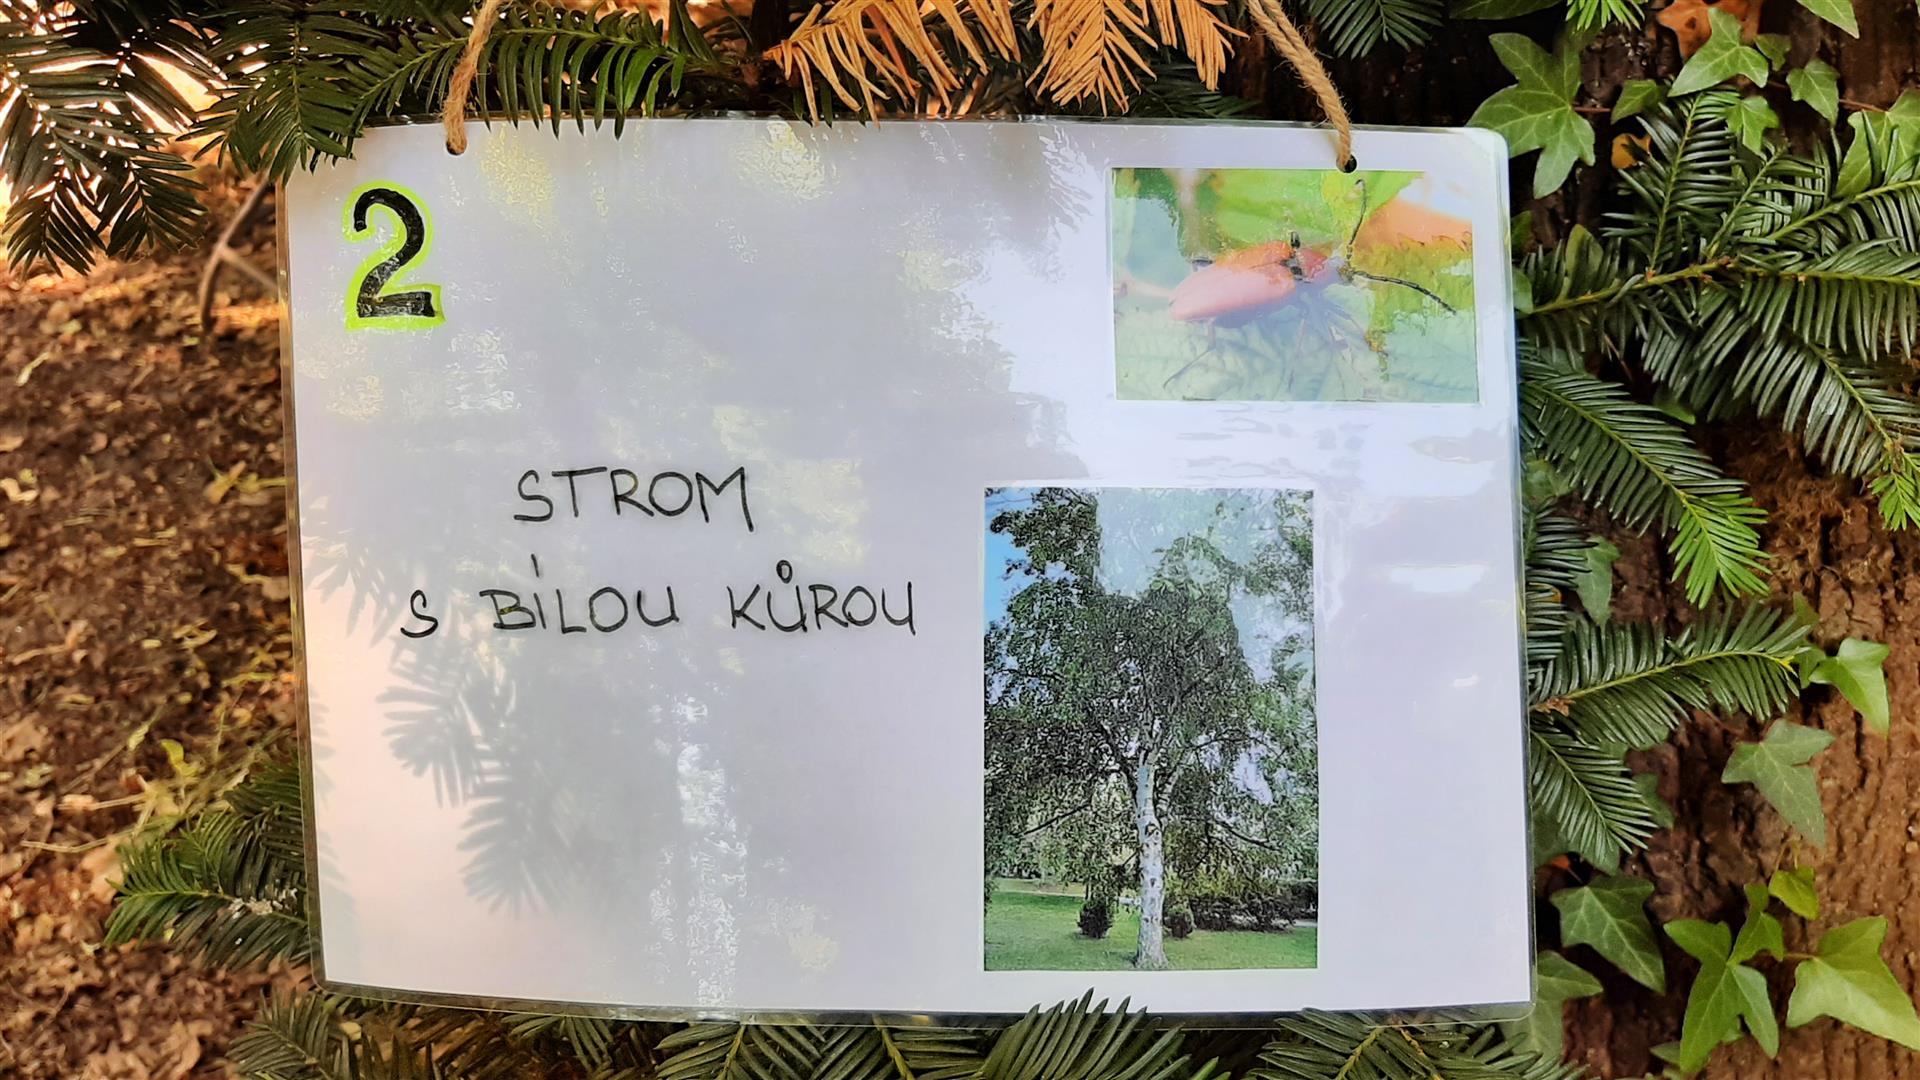 2
STROM
S BÍLOU KŮROU